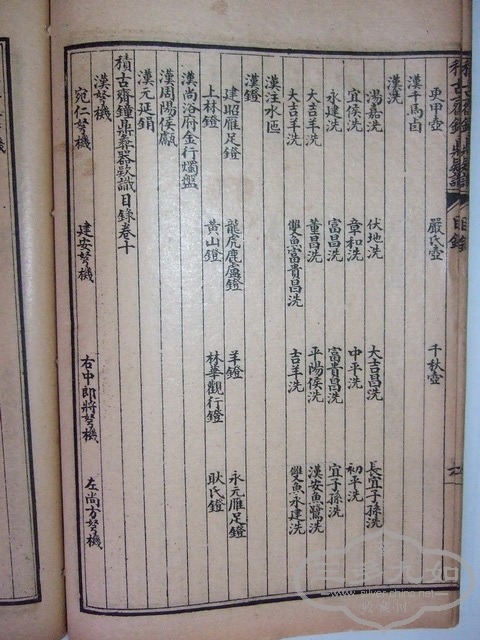 目錄
更甲壺 嚴氏壺 千秋壺
漢千馬卣
漢洗
湯嘉洗 伏地洗 大吉昌洗 長宜子孫洗
宜侯洗 章和洗 中平洗 初平洗
永建洗 富昌洗 富貴昌洗 宜子孫洗
大吉羊洗 董昌洗 平陽侯洗 漢安魚鷺洗
大吉羊洗 雙魚富貴昌洗 吉羊洗 雙魚永建洗
漢注水匜
漢鐙
建昭雁足鐙 龍虎鹿盧鐙 羊鐙 永元雁足鐙
上林鐙 黃山鐙 林華觀行鐙 耿氏鐙
漢尚浴府金行燭盤
漢周陽侯甗
漢元延鋗
積古齋鐘鼎彝器款識目錄卷十
漢弩機
宛仁弩機 建安弩機 右中郎將弩機 左尚方弩機